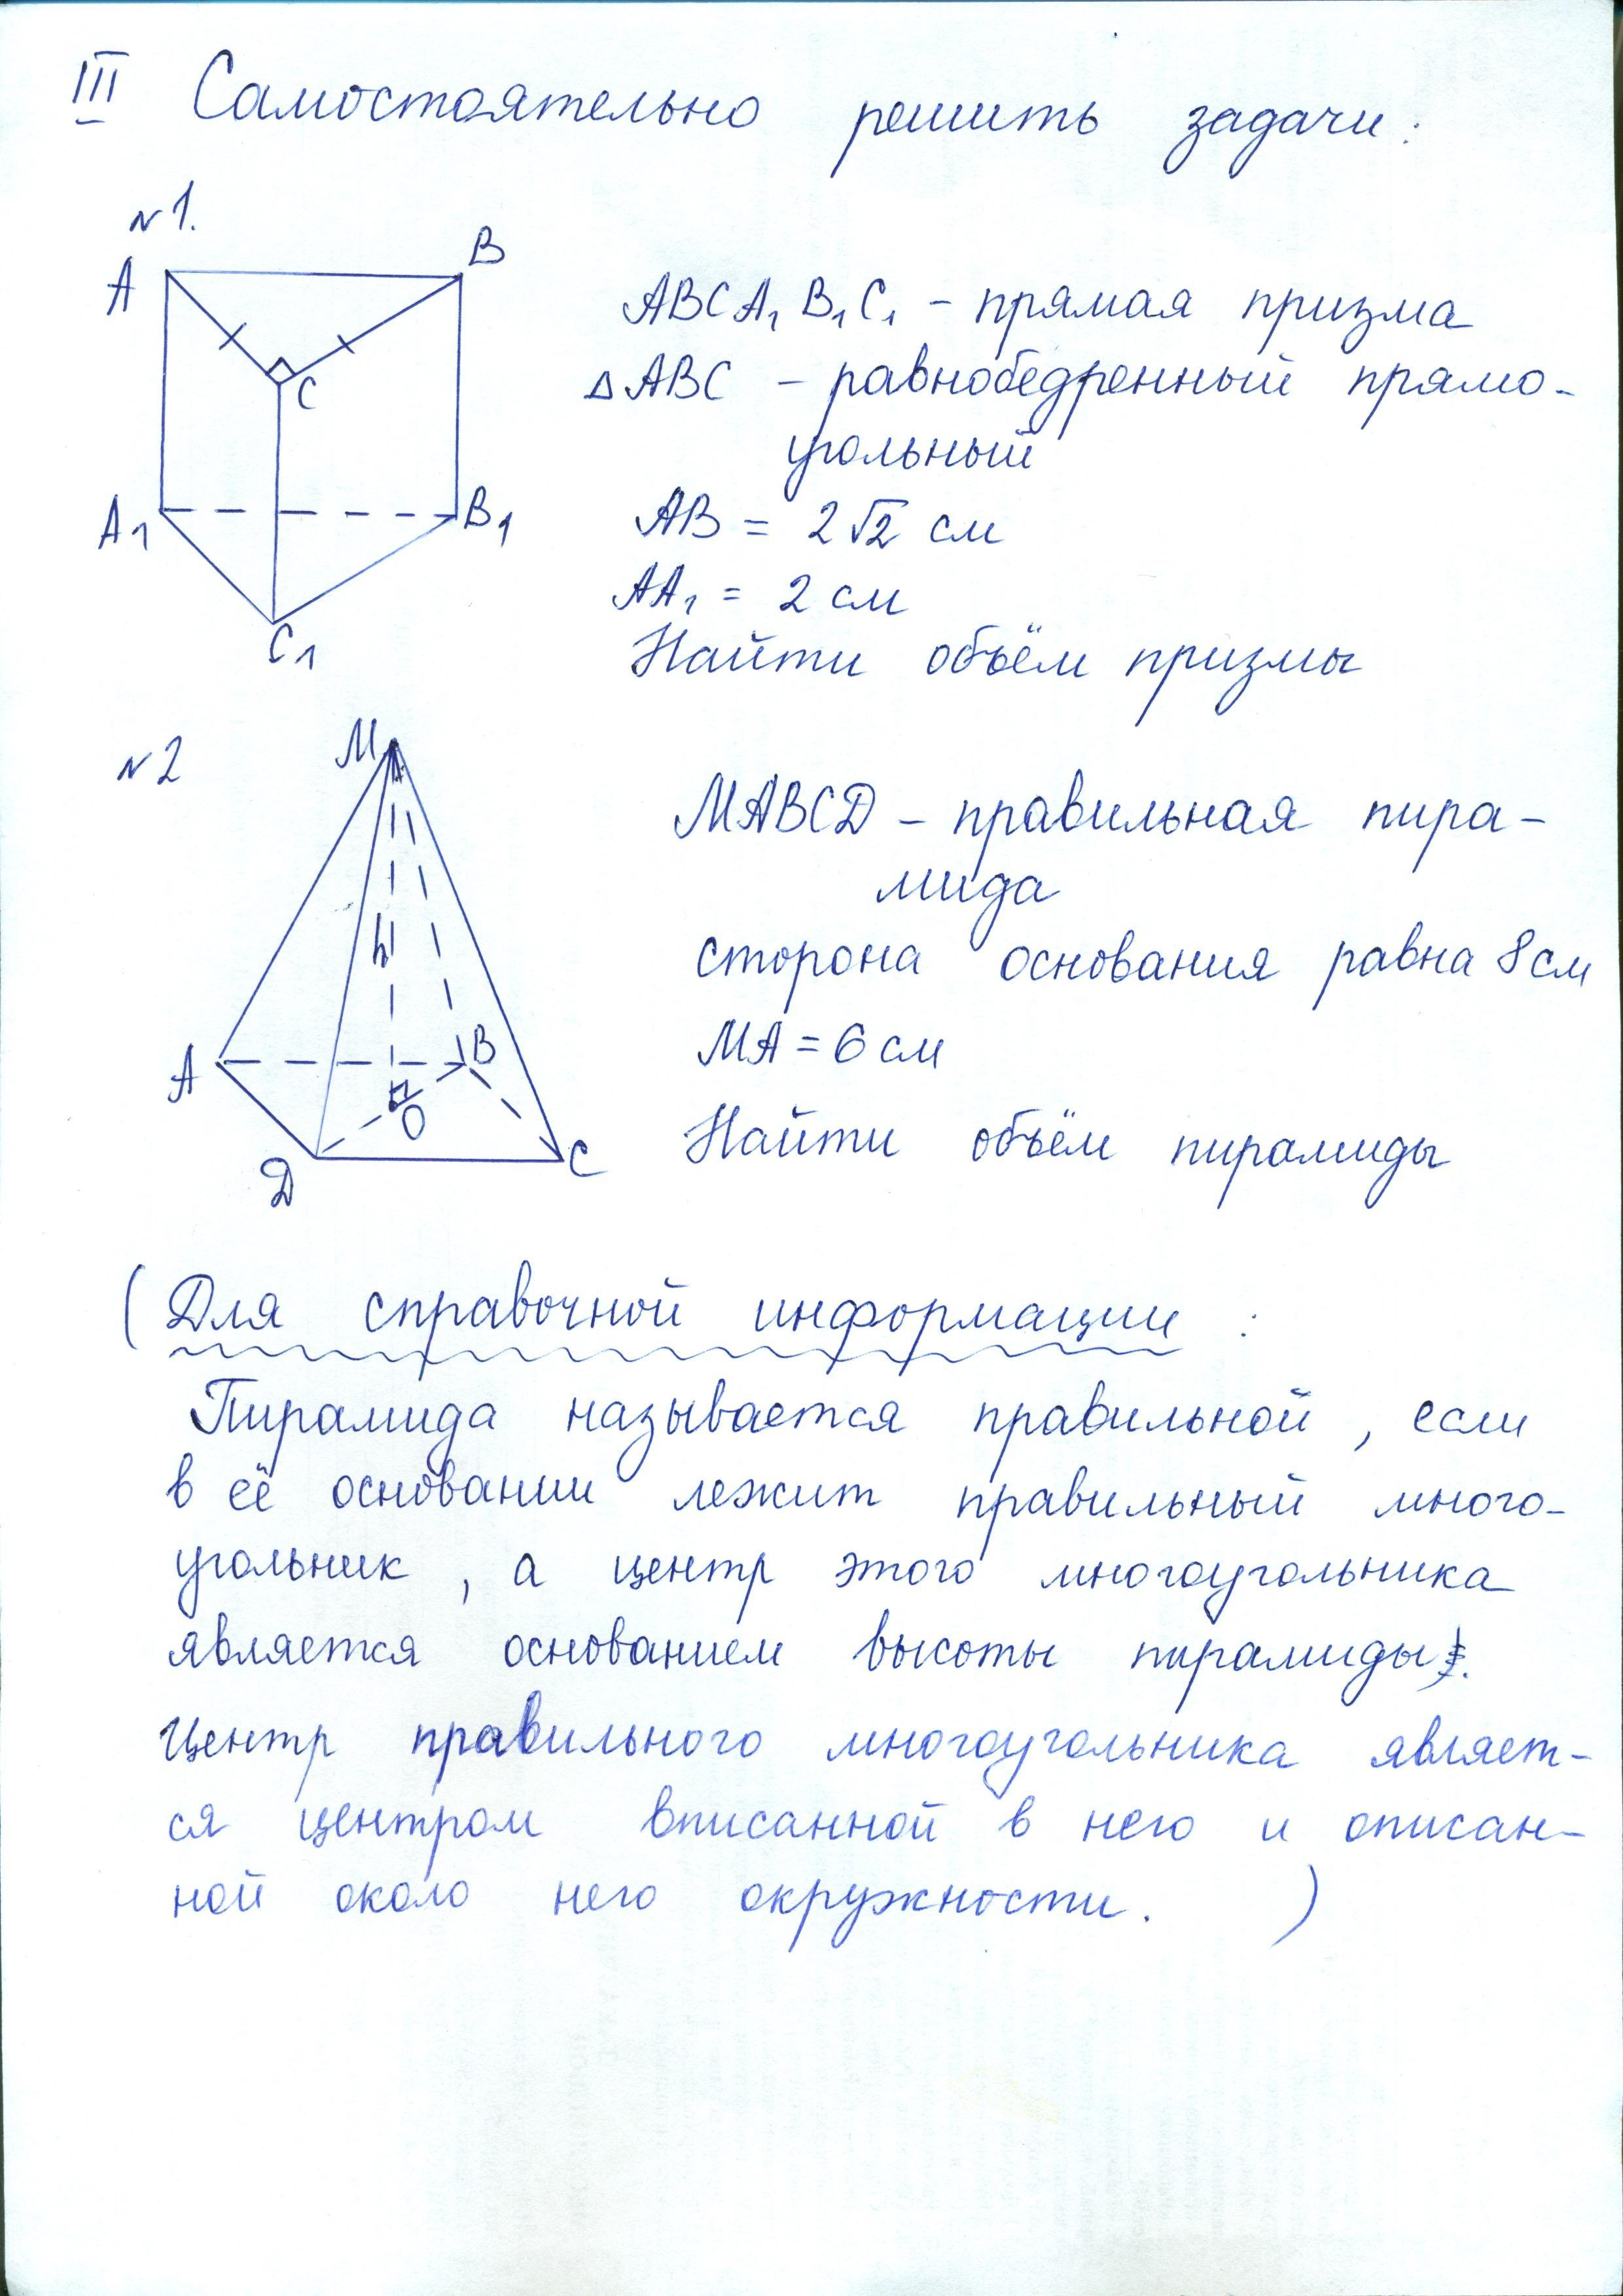 III Самостоятельно решить задачи:
N1.
A
B
C
A1
B1
C1
ABCA1B1C1 – прямая призма
△ABC – равнобедренный прямо-
угольный
AB = 2√2 см
AA1 = 2 см
Найти объём призмы
N2
M
h
A
B
O
D
C
MABCD – правильная пира-
мида
сторона основания равна 8 см
MA = 6 см
Найти объём пирамиды
(Для справочной информации:
Пирамида называется правильной, если
в её основании лежит правильный много-
угольник, а центр этого многоугольника
является основанием высоты пирамиды.
Центр правильного многоугольника являет-
ся центром вписанной в него и описан-
ной около него окружности. )